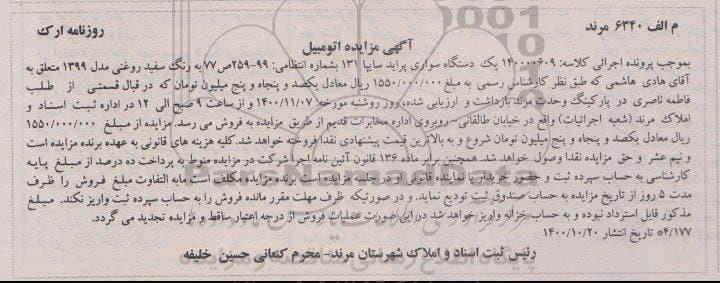 م الف ۶۳۴۰ مرند
روزنامه ارک
آگهی مزایده اتومبیل
بموجب پرونده اجرائی کلاسه: ۱۴۰۰۰۰۶۰۹ یک دستگاه سواری پراید سایپا ۱۳۱ بشماره انتظامی: ۹۹-۲۵۹ص۷۷ به رنگ سفید روغنی مدل ۱۳۹۹ متعلق به
آقای هادی هاشمی که طبق نظر کارشناس رسمی به مبلغ ۱۵۵۰/۰۰۰/۰۰۰ ریال معادل یکصد و پنجاه و پنج میلیون تومان که در قبال قسمتی از طلب
فاطمه ناصری در پارکینگ وحدت مرند بازداشت و ارزیابی شده، روز روشنبه مورخه: ۱۴۰۰/۱۱/۰۷ و از ساعت ۹ صبح الی ۱۲ در اداره ثبت اسناد و
املاک مرند (شعبه اجرائیات) واقع در خیابان طالقانی- روبروی اداره مخابرات قدیم از طریق مزایده به فروش می رسد. مزایده از مبلغ ۱۵۵۰/۰۰۰/۰۰۰
ریال معادل یکصد و پنجاه و پنج میلیون تومان شروع و به بالاترین قیمت پیشنهادی نقدا فروخته خواهد شد.کلیه هزینه های قانونی به عهده برنده مزایده است
و نیم عشر و حق مزایده نقدا وصول خواهد شد. همچنین برابر ماده ۱۳۶ قانون آئین نامه اجرا شرکت در مزایده منوط به پرداخت ده درصد از مبلغ پایه
کارشناسی به حساب سپرده ثبت و حضور خریدار یا نماینده قانونی او در جلسه مزایده است. برنده مزایده مکلف است مابه التفاوت مبلغ فروش را ظرف
مدت ۵ روز از تاریخ مزایده به حساب صندوق ثبت تودیع نماید. و در صورتیکه ظرف مهلت مقرر مانده فروش را به حساب سپرده ثبت واریز نکند. مبلغ
مذکور قابل استرداد نبوده و به حساب خزانه واریز خواهد شد در این صورت عملیات فروش از درجه اعتبار ساقط و مزایده تجدید می گردد.
۵۴/۱۷۷ تاریخ انتشار ۱۴۰۰/۱۰/۲۰
رئیس ثبت اسناد و املاک شهرستان مرند- محرم کنعانی حسین خلیفه